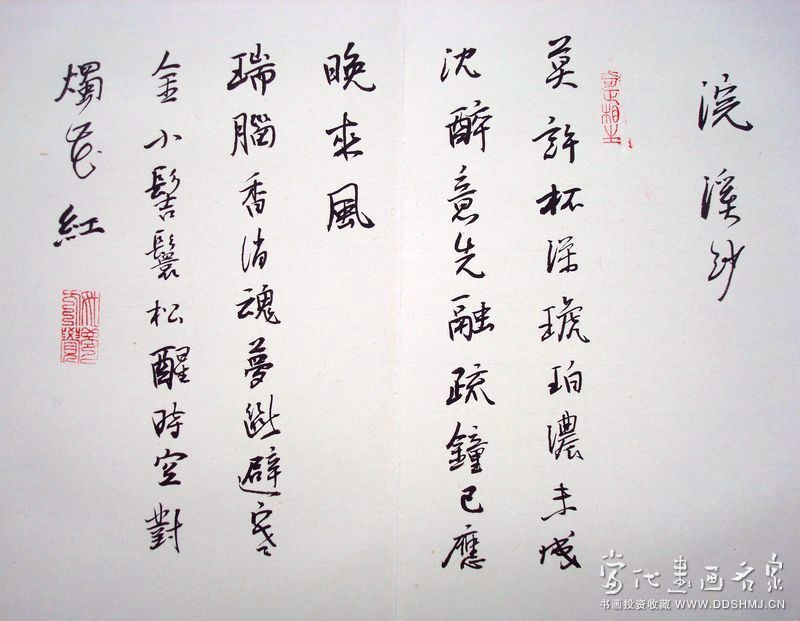 浣溪紗
莫許杯深琥珀濃未成
沈醉意先融疏鐘已應
晚來風
瑞腦香消魂夢斷辟寒
金小髻鬟松醒時空對
燭花紅
當代書畫名家
书画投资收藏 WWW.DDSHMJ.CN